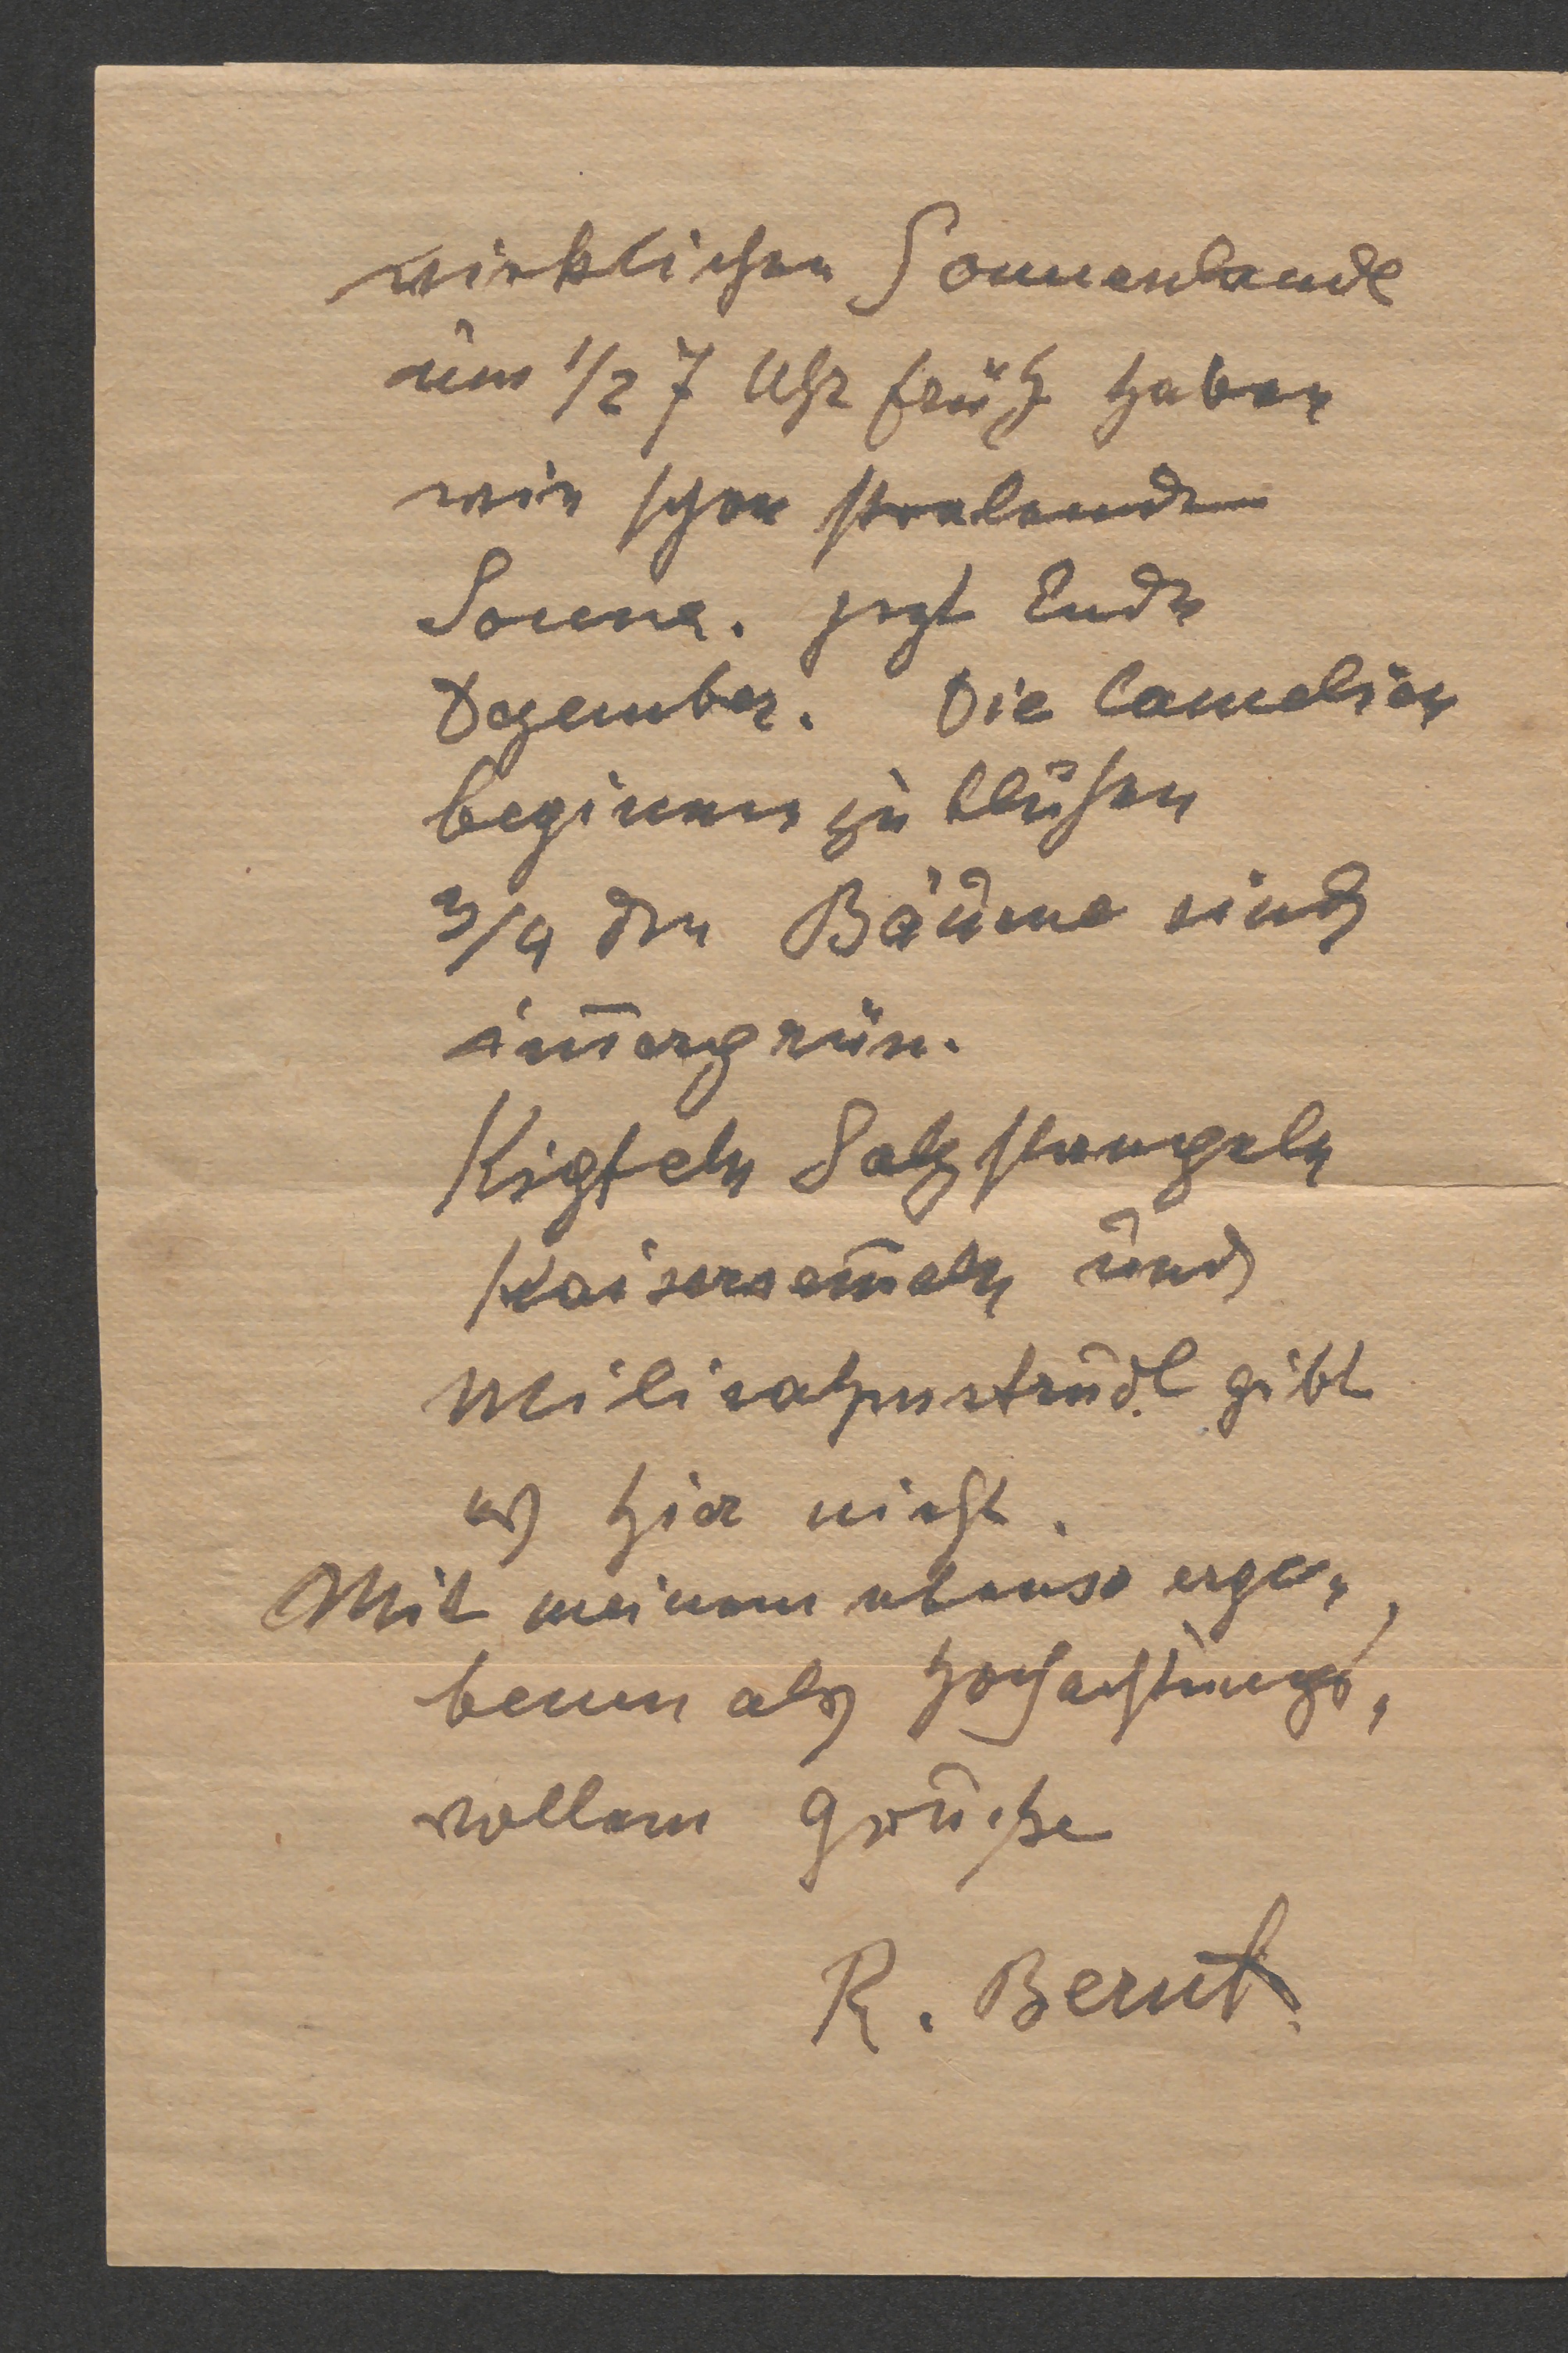 wirklichen Sonnenlande
um 1/2 7 Uhr früh haben
wir schon stralende
Sonne. jezt Ende
Dezember. Die Camelien
beginnen zu blühen
3/4 der Bäume sind
im̅ergrün.
Kipfeln Salzstangeln
Kaisersem̅eln und
Milirahmstrudl gibt
es hier nicht.
Mit meinem ebenso erge„
benen als hochachtungs„
vollem Gruße
R. Bernt